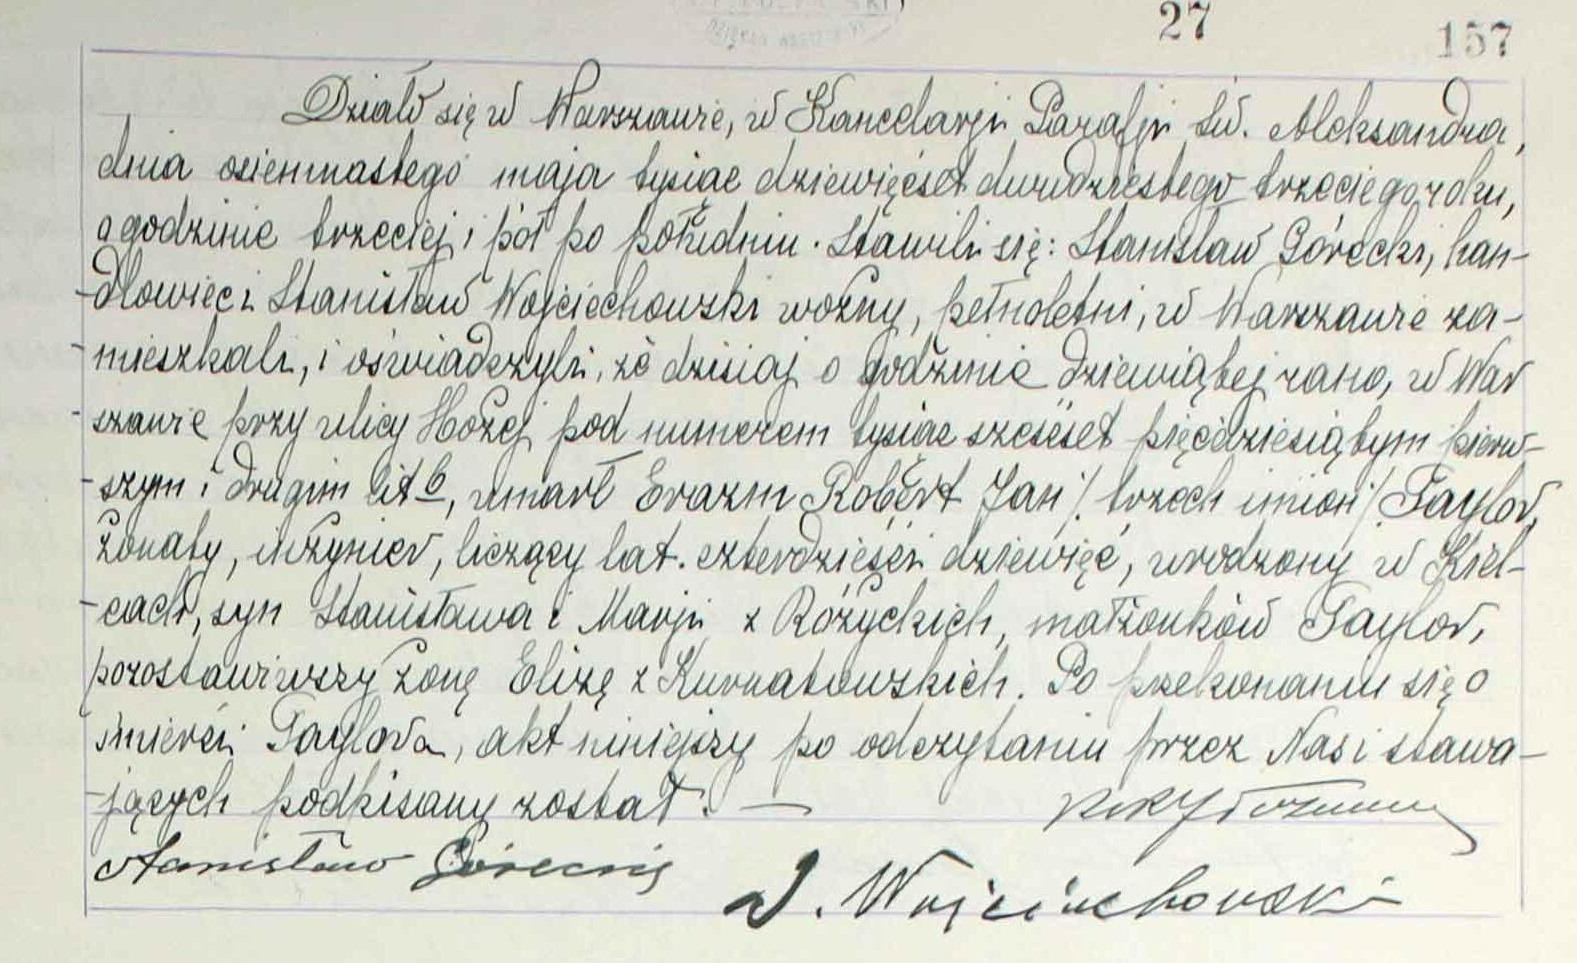 27
157
Działo się w Warszawie, w Kancelarji Parafji Św. Aleksandra,
dnia osiemnastego maja tysiąc dziewięćset dwudziestego trzeciego roku,
o godzinie trzeciej i pół po południu. Stawili się: Stanisław Górecki, han-
dlowiec i Stanisław Wojciechowski woźny, pełnoletni, w Warszawie za-
mieszkali, i oświadczyli, że dzisiaj o godzinie dziewiątej rano, w War
szawie przy ulicy Hożej pod numerem tysiąc sześćset pięćdziesiątym pierw-
szym i drugim lit b, umarł Erazm Robert Jan /trzech imion/ Taylor,
żonaty, inżynier, liczący lat czterdzieści dziewięć, urodzony w Kiel-
cach, syn Stanisława i Marji z Różyckich, małżonków Taylor,
pozostawiwszy żonę Elizę z Kurnatowskich. Po przekonaniu się o
śmierci Taylora, akt niniejszy po odczytaniu przez Nas i stawa-
jących podpisany został. —
Stanisław Górecki
S. Wojciechowski